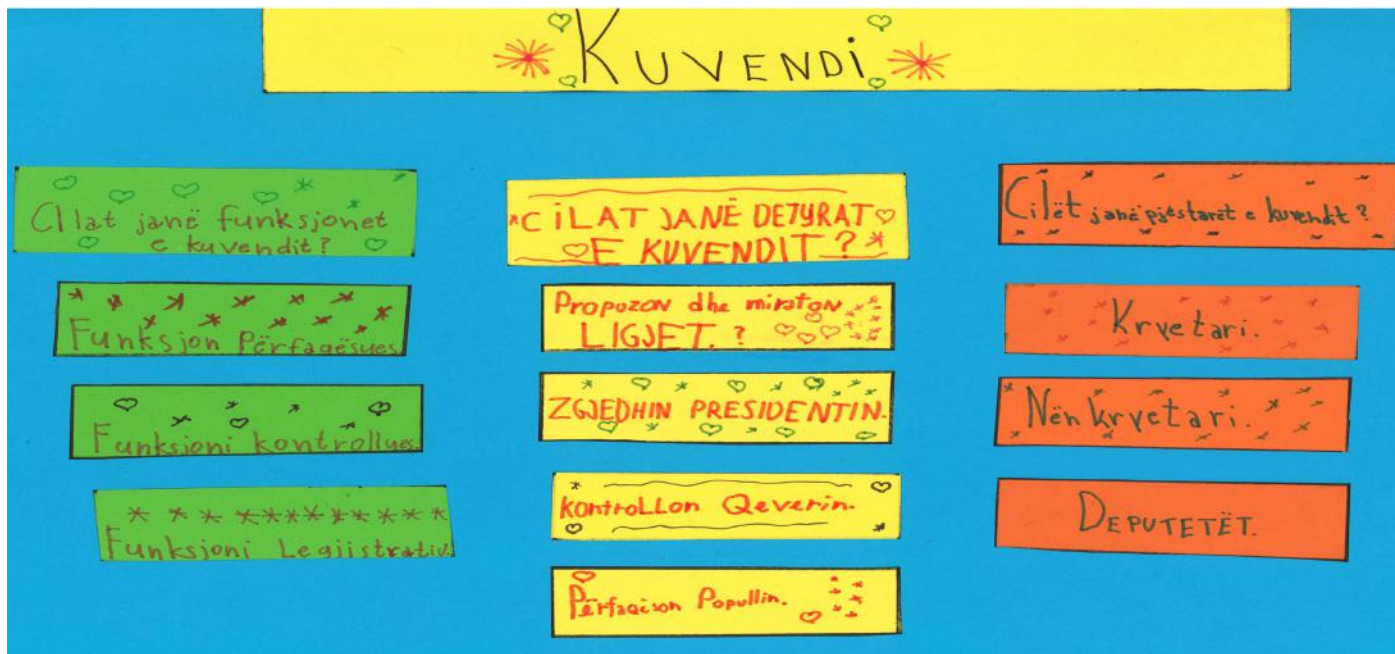 KUVENDI
CIlat janë funksjonet
e kuvendit?
Funksjon Përfaqësues
Funksjoni kontrollues.
Funksjoni Legjistrativ.
CILAT JANË DETYRAT
E KUVENDIT?
Propozon dhe miraton
LIGJET.?
ZGJEDHIN PRESIDENTIN.
kontrollon Qeverin.
Përfaqison Popullin.
Cilët janë pjëstarët e kuvendt?
Krvetari.
Nën krvetari.
DEPUTETËT.